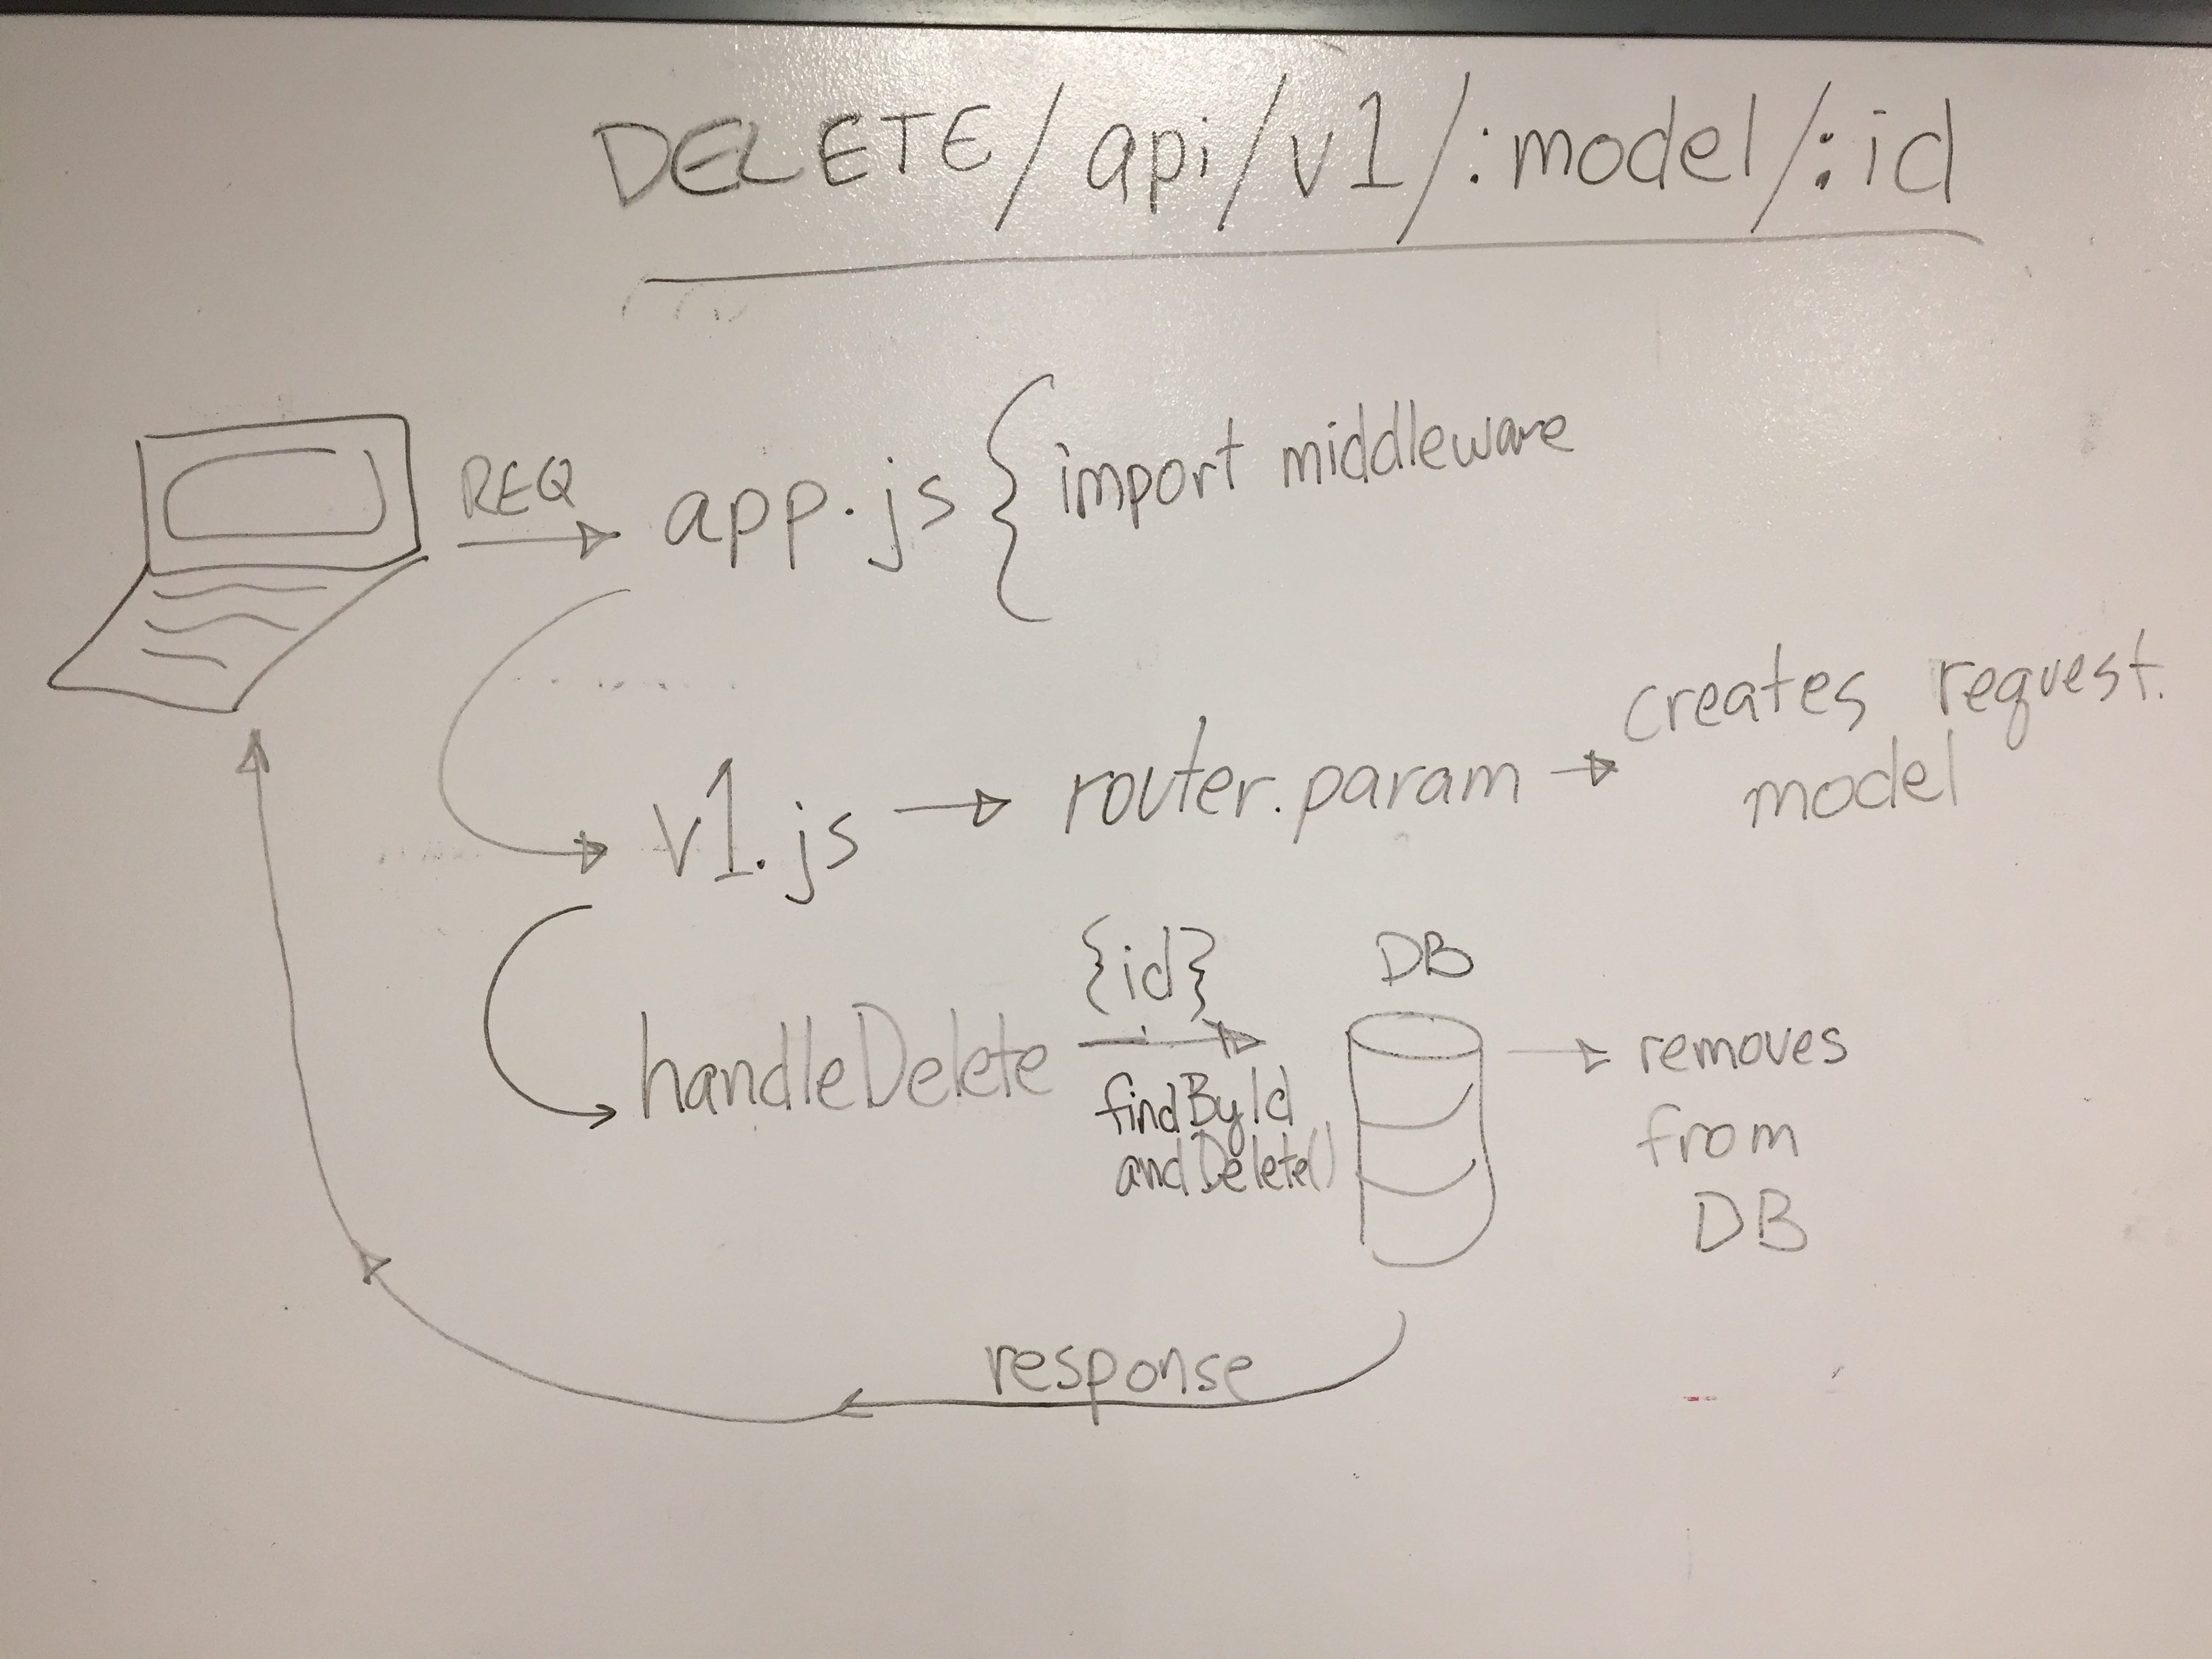 DELETE/api/v1/:model/:id
REQ
app.js { import middleware
v1.js
router.param
creates request.
model
handleDelete
{id}
findById
andDelete()
DB
removes
from
DB
response